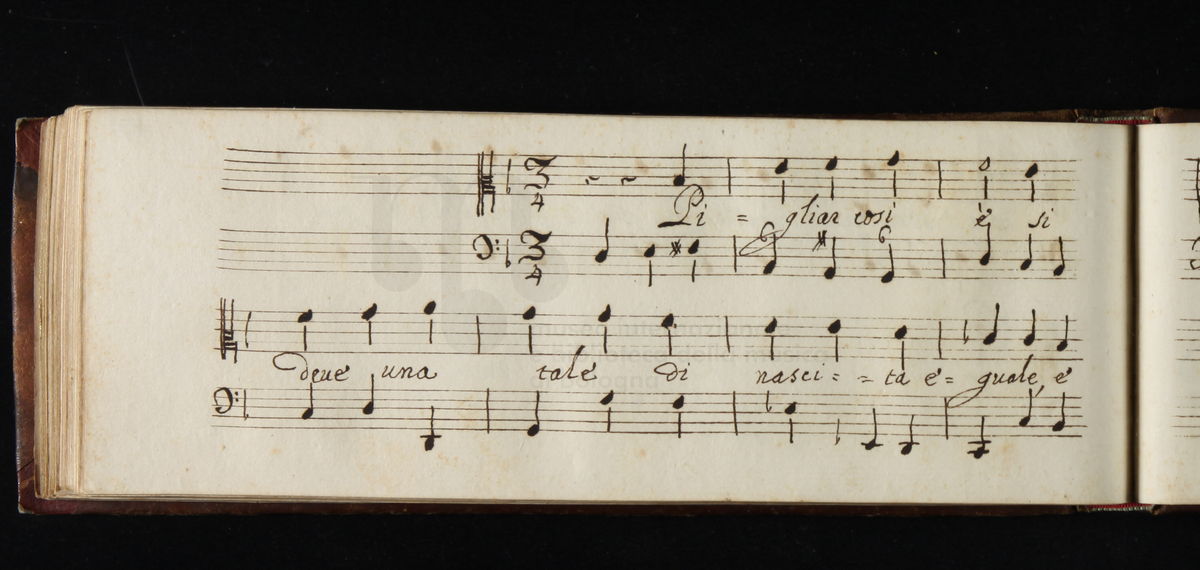 3/4
Pi = gliar così è si
3/4
deve una tale di nasci = = ta e = guale, e